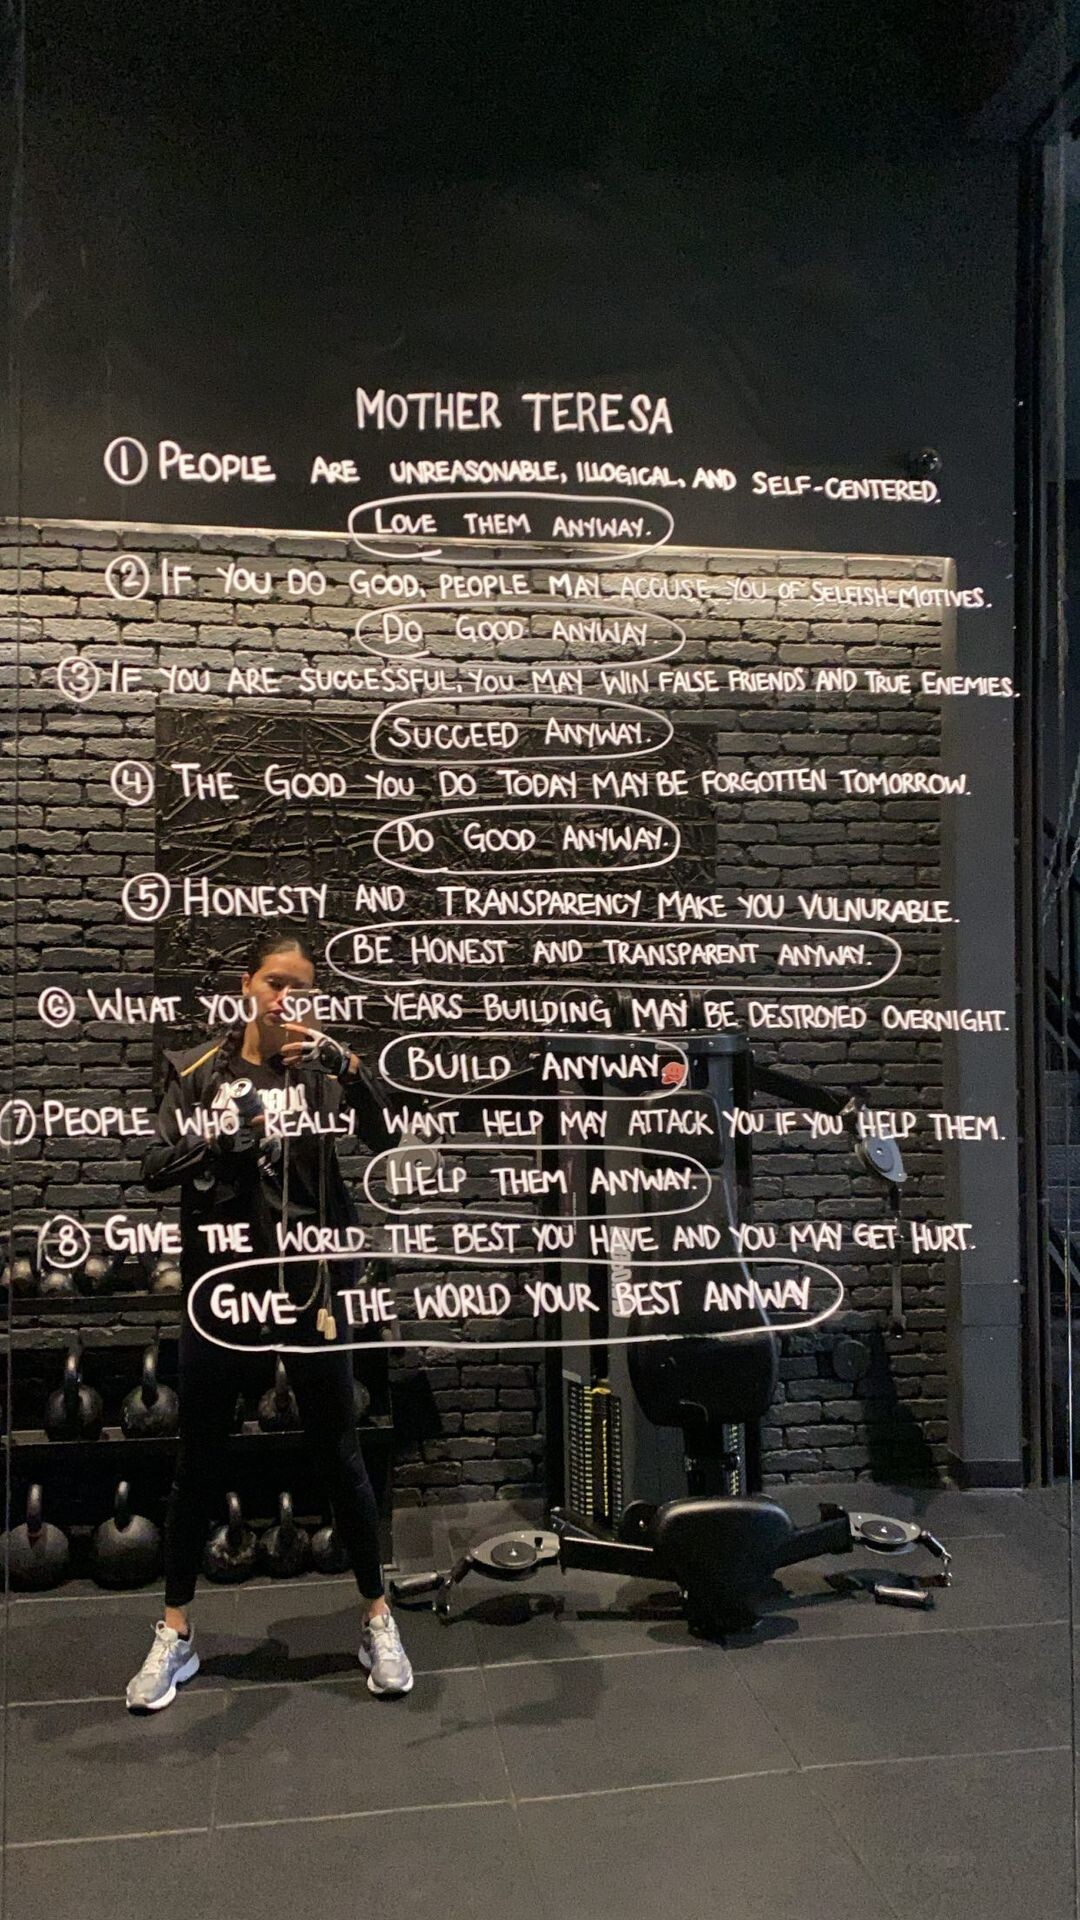 MOTHER TERESA
① PEOPLE ARE UNREASONABLE, ILLOGICAL, AND SELF-CENTERED.
LOVE THEM ANYWAY.
② IF YOU DO GOOD, PEOPLE MAY ACCUSE YOU OF SELFISH MOTIVES.
DO GOOD ANYWAY
③ IF YOU ARE SUCCESSFUL, YOU MAY WIN FALSE FRIENDS AND TRUE ENEMIES.
SUCCEED ANYWAY.
④ THE GOOD YOU DO TODAY MAY BE FORGOTTEN TOMORROW.
DO GOOD ANYWAY.
⑤ HONESTY AND TRANSPARENCY MAKE YOU VULNURABLE.
BE HONEST AND TRANSPARENT ANYWAY.
⑥ WHAT YOU SPENT YEARS BUILDING MAY BE DESTROYED OVERNIGHT.
BUILD ANYWAY.
⑦ PEOPLE WHO REALLY WANT HELP MAY ATTACK YOU IF YOU HELP THEM.
HELP THEM ANYWAY.
⑧ GIVE THE WORLD THE BEST YOU HAVE AND YOU MAY GET HURT.
GIVE THE WORLD YOUR BEST ANYWAY